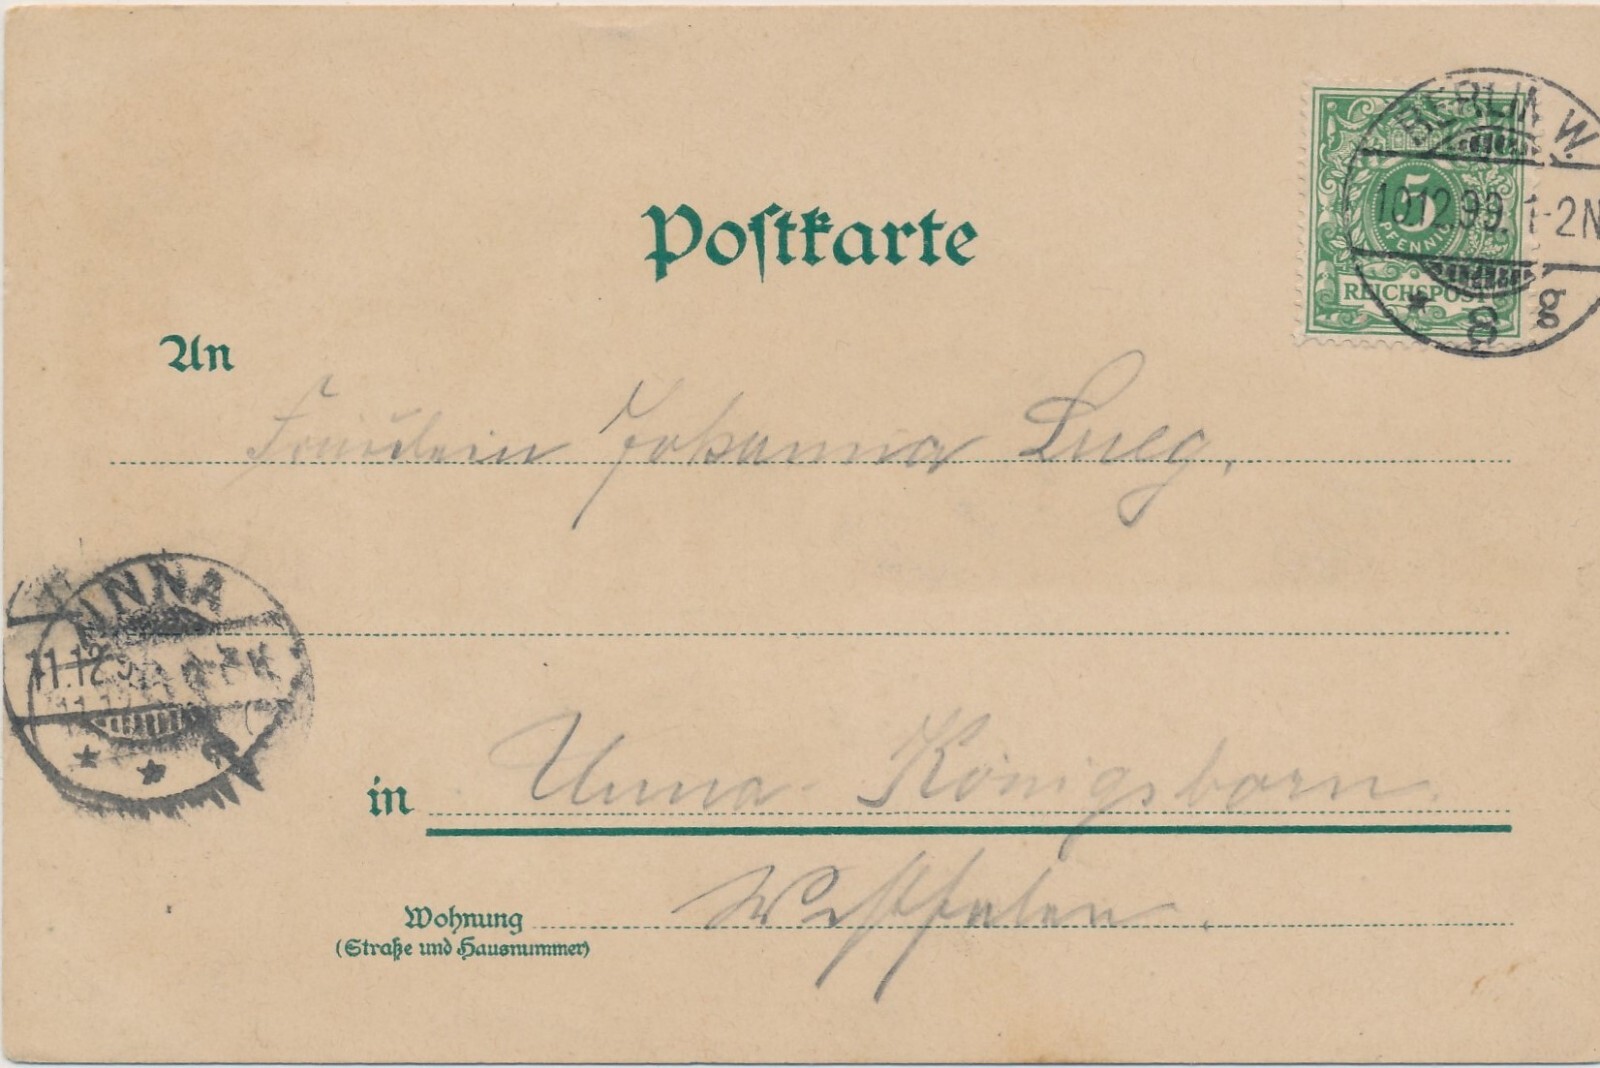 Postkarte
BERLIN W.
10.12.99. 1-2N
* 8 g
5
PFENNIG
REICHSPOST
An
Fräulein Johanna Lueg.
UNNA
11.12
in Unna-Königsborn.
Westfalen.
Wohnung
(Straße und Hausnummer)